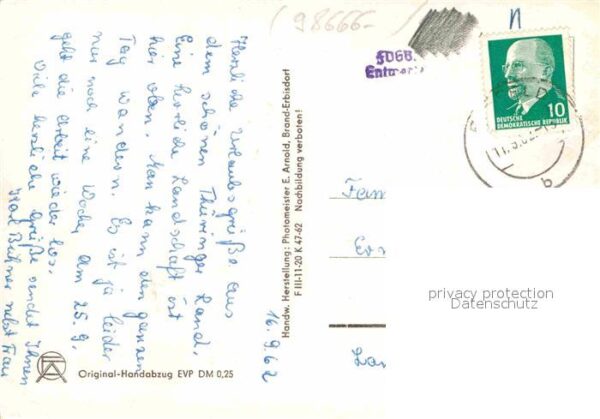 (98666-
n
FDGB
DEUTSCHE
DEMOKRATISCHE REPUBLIK
10
Herzliche Urlaubsgrüße aus
dem schönen Thüringer Land.
Eine herrliche Landschaft ist
hier oben. Man kann den ganzen
Tag wandern. Es ist ja leider
nur noch eine Woche, am 25. 9.
geht die Arbeit wieder los.
Viele herzliche Grüße sendet Ihnen
Karl Bühner nebst Frau
16. 9. 62
Handw. Herstellung: Photomeister E. Arnold, Brand-Erbisdorf
F III-11-20 K 47-62 Nachbildung verboten!
Fam
privacy protection
Datenschutz
Original-Handabzug EVP DM 0,25